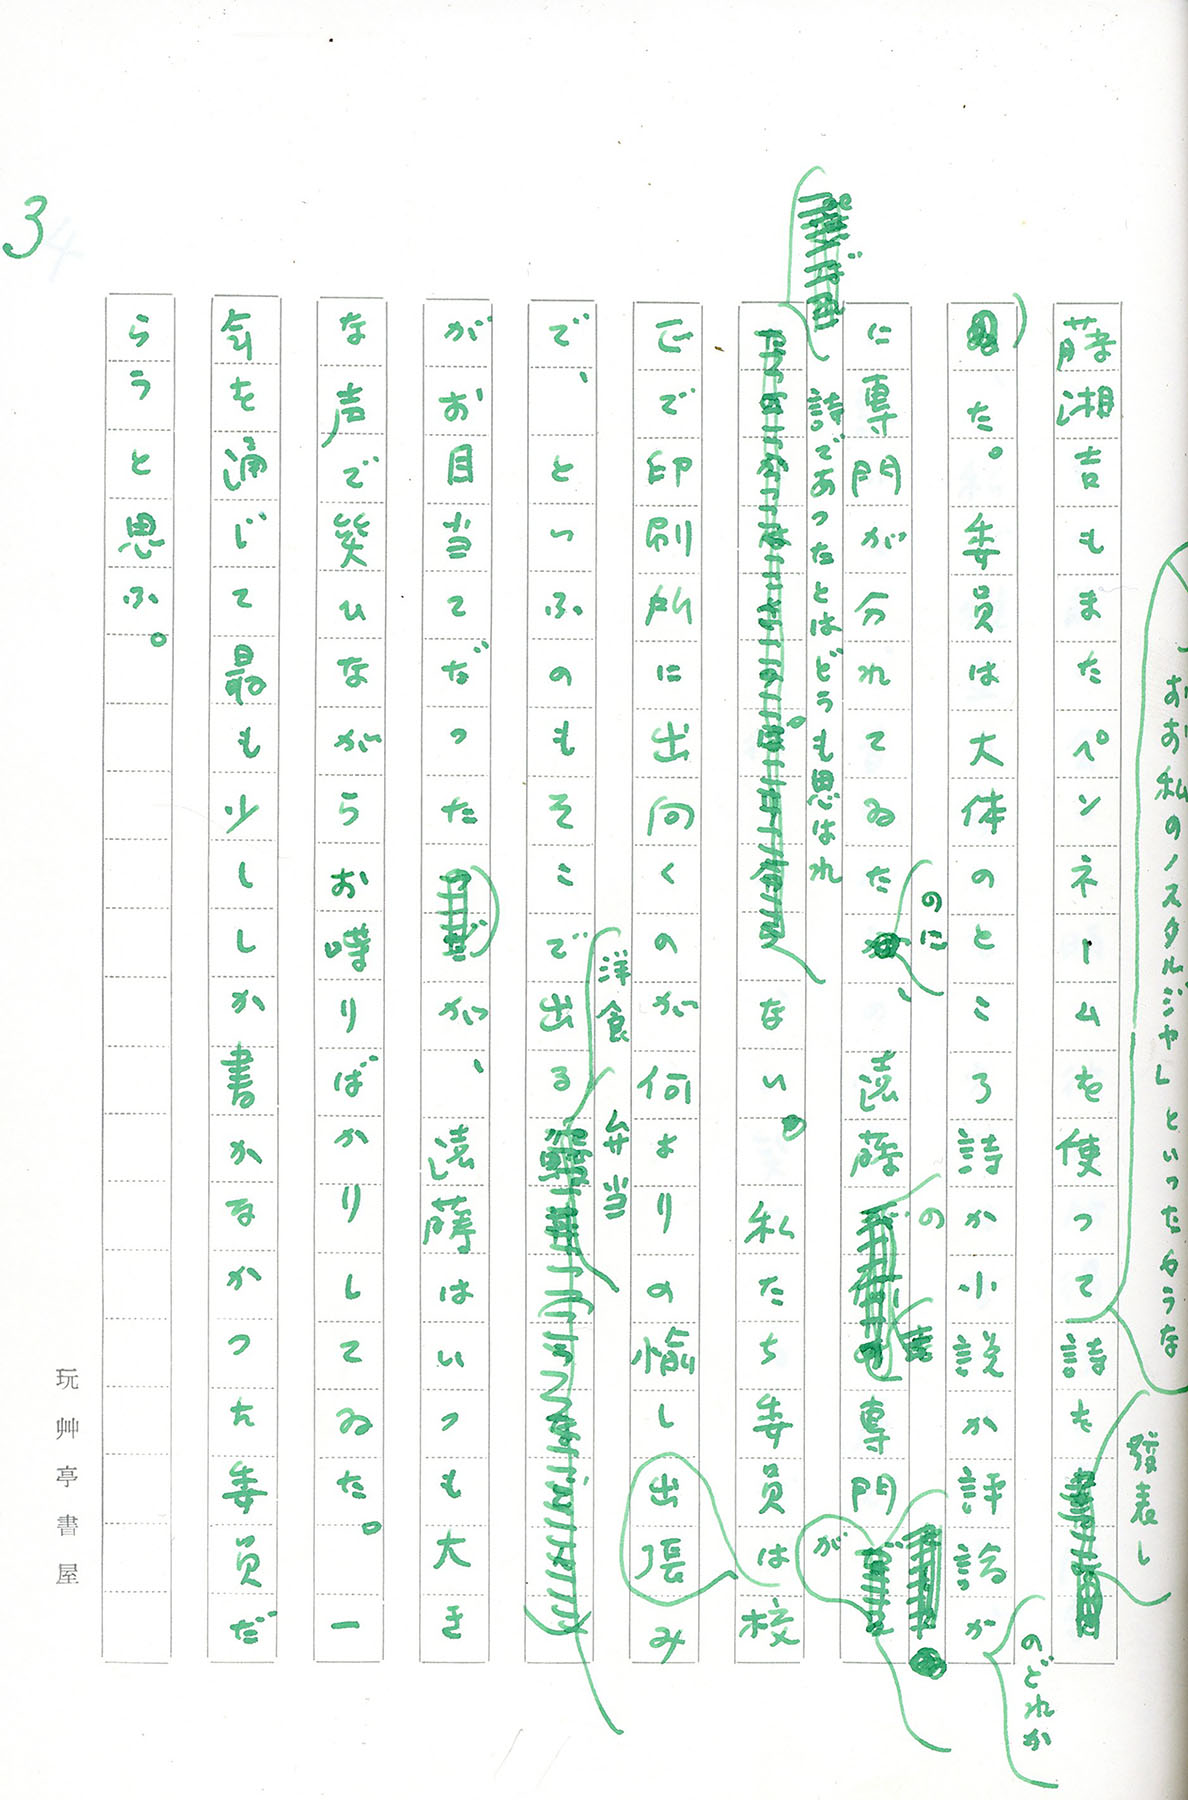 「おお私のノスタルジヤ」といつたやうな
發表し
藤湘吉もまたペンネームを使つて詩を
のどれか
た。委員は大体のところ詩か小説か評論か
のに
の
に専門が分れてゐた、遠藤専門
が
詩であつたとはどうも思はれ
ない。私たち委員は校
正で印刷所に出向くのが何よりの愉し出張み
洋食弁当
で、といふのもそこで出る
がお目当てだつたが、遠藤はいつも大き
な声で笑ひながらお喋りばかりしてゐた。一
年を通じて最も少ししか書かなかつた委員だ
らうと思ふ。
3
玩艸亭書屋